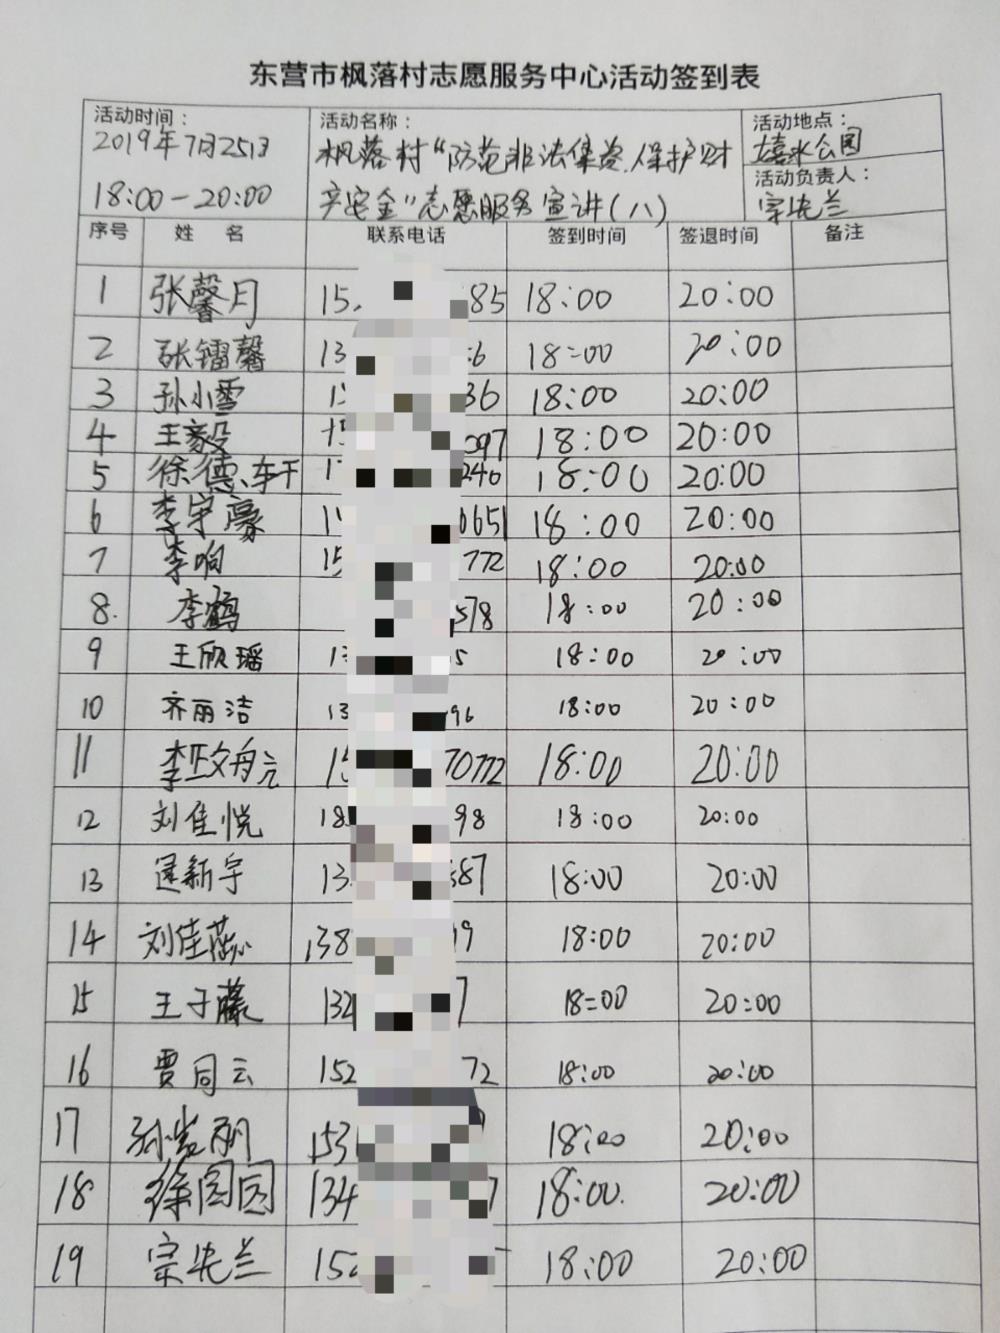 东营市枫落村志愿服务中心活动签到表
活动时间： 2019年7月25日 18:00-20:00
活动名称： 枫落村“防范非法集资.保护财
产安全”志愿服务宣讲(八)
活动地点： 公园
活动负责人： 宗先兰
序号 姓 名 联系电话 签到时间 签退时间 备注
1 张馨月 15 85 18:00 20:00
2 张镭馨 13 6 18:00 20:00
3 孙小雪 1 36 18:00 20:00
4 王毅 15 097 18:00 20:00
5 徐德 1 246 18:00 20:00
6 李宇豪 1 651 18:00 20:00
7 李响 15 772 18:00 20:00
8. 李鹤 578 18:00 20:00
9 王欣瑶 13 5 18:00 20:00
10 齐丽洁 13 96 18:00 20:00
11 李 15 70772 18:00 20:00
12 刘佳悦 18 98 18:00 20:00
13 新宇 13 87 18:00 20:00
14 刘佳蕊 138 9 18:00 20:00
15 王子藤 132 7 18:00 20:00
16 贾同云 152 72 18:00 20:00
17 孙 丽 153 18:00 20:00
18 徐园园 134 7 18:00. 20:00
19 宗先兰 152 18:00 20:00